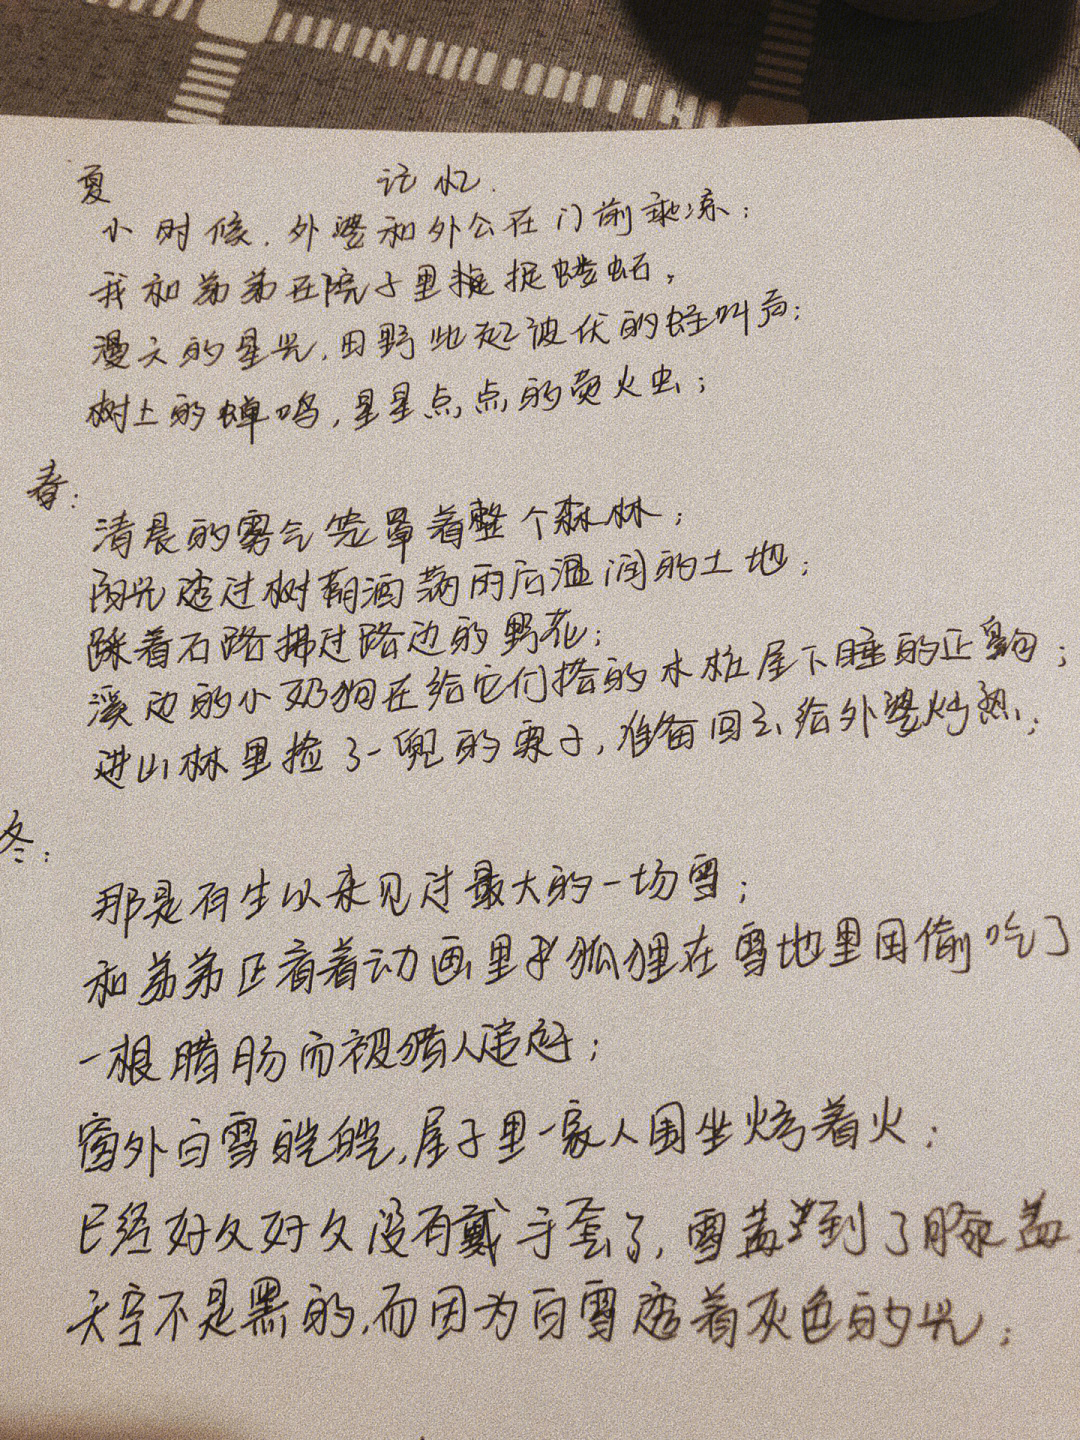 夏 记忆.
小时候.外婆和外公在门前乘凉;
我和弟弟在院子里捉蝼蛄,
漫天的星光,田野此起彼伏的蛙叫声;
树上的蝉鸣,星星点点的萤火虫;
春:
清晨的雾气笼罩着整个森林;
阳光透过树荫洒满雨后湿润的土地;
踩着石路拂过路边的野花;
溪边的小奶狗在给它们搭的木桩屋下睡的正香;
进山林里捡了一兜的栗子,准备回去给外婆炒熟;
冬:
那是有生以来见过最大的一场雪;
和弟弟正看着动画里狐狸在雪地里因偷吃了
一根腊肠而被猎人追赶;
窗外白雪皑皑,屋子里一家人围坐烤着火;
已经好久好久没有戴手套了,雪盖到了膝盖,
天空不是黑的,而因为白雪透着灰色的光;